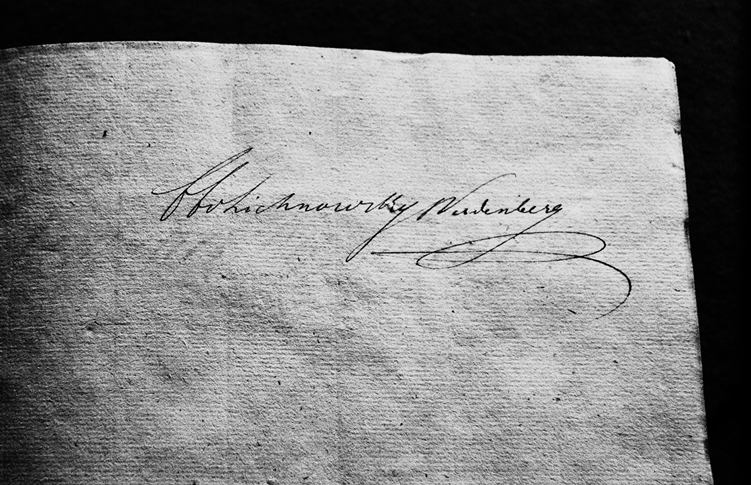 Lichnowsky Werdenberg